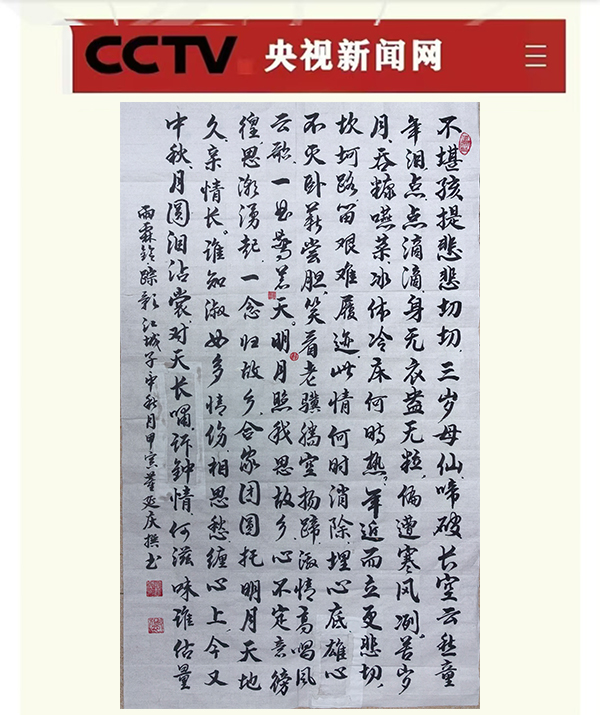 CCTV 央视新闻网
不堪孩提悲悲切切,三岁母仙,啼破长空云愁童
年泪,点点滴滴,身无衣盎无粒,偏遭寒风冽。苦岁
月,吞糠嚥菜,冰体冷床何时热。年近而立更悲切,
坎坷路,艰难履迹,此情何时消除,埋心底,雄心
不灭卧薪尝胆,笑看老骥腾空扬蹄,激情高唱风
云歌,一惊天。明月照我思故乡,心不定意徬
徨,思潮涌起,一念归故乡,合家团圆托明月天地
久,亲情长,谁知淑女多情伤,相思愁,缠心上,今又
中秋,月圆泪沾裳,对天长啸,诉钟情何滋味谁估量
雨霖铃踪影江城子中秋月甲寅董延庆撰书